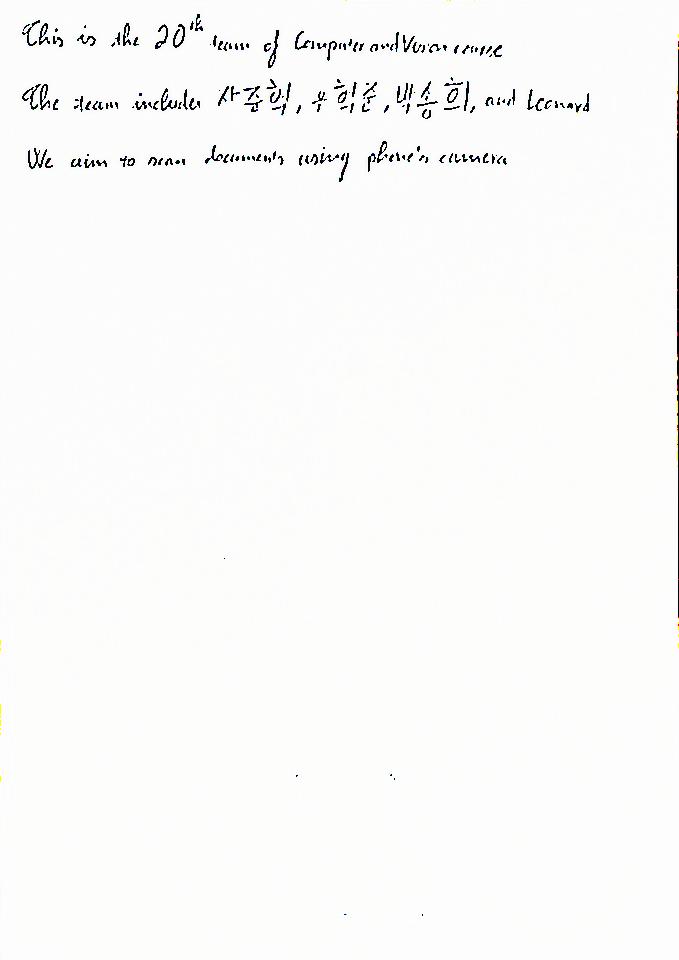 This is the 20th team of Computer and Vision course
The team includes 사준혁, 우희준, 박송희, and Leonard
We aim to scan documents using phone's camera